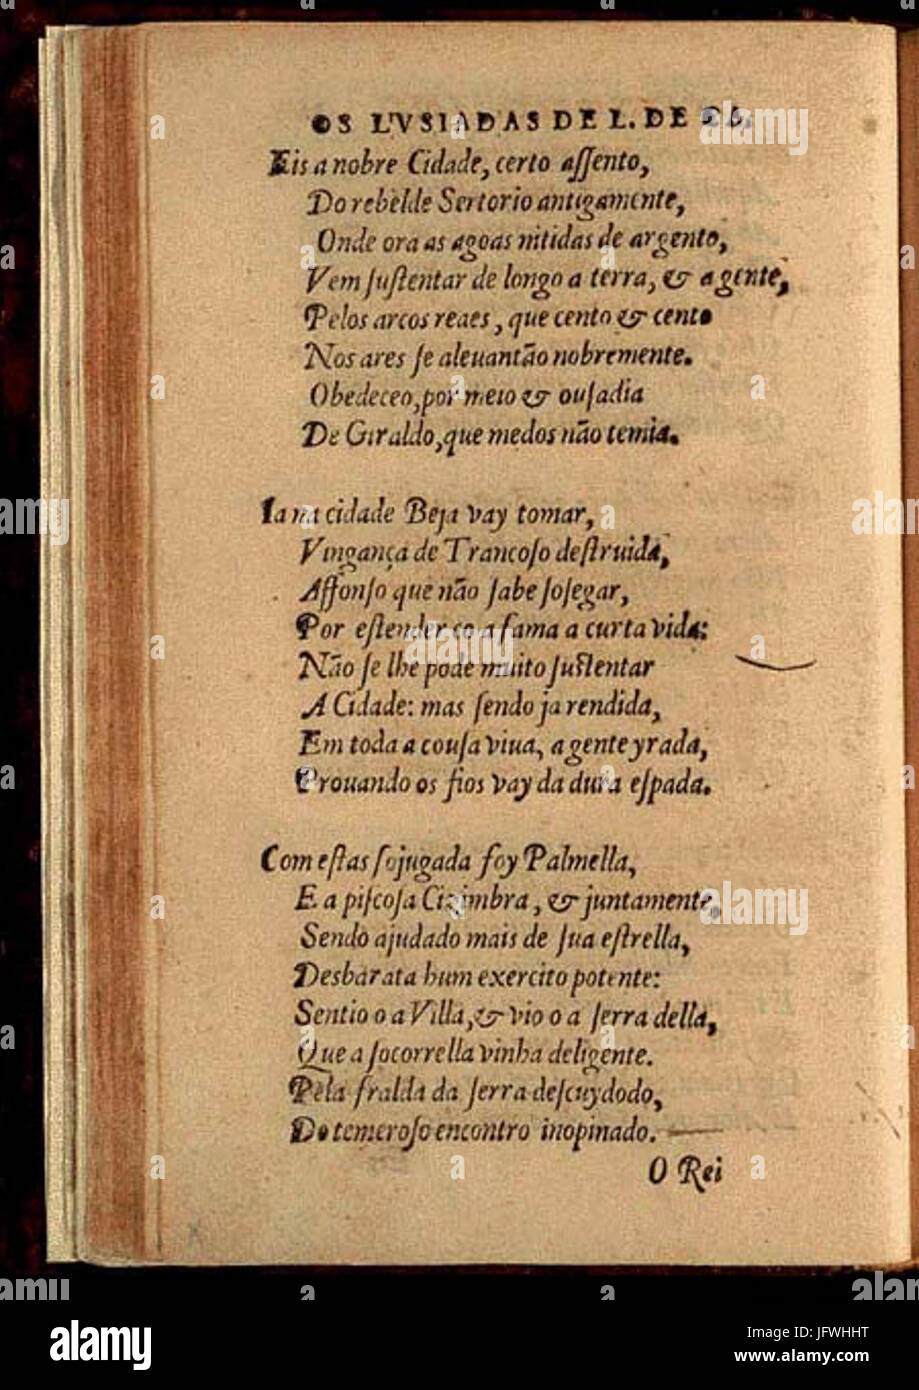 OS LVSIADAS DE L. DE CA.
Eis a nobre Cidade, certo aſſento,
Do rebelde Sertorio antigamente,
Onde ora as agoas nitidas de argento,
Vem ſuſtentar de longo a terra, & a gente,
Pelos arcos reaes, que cento & cento
Nos ares ſe aleuantão nobremente.
Obedeceo, por meio & ouſadia
De Giraldo, que medos não temia.
Ia na cidade Beja vay tomar,
Vingança de Trancoſo deſtruida,
Affonſo que não ſabe ſoſegar,
Por eſtender co a fama a curta vida:
Não ſe lhe pode muito ſuſtentar
A Cidade: mas ſendo ja rendida,
Em toda a couſa viua, a gente yrada,
Prouando os fios vay da dura eſpada.
Com eſtas ſojugada foy Palmella,
E a piſcoſa Cizimbra, & juntamente,
Sendo ajudado mais de ſua eſtrella,
Desbarata hum exercito potente:
Sentio o a Villa, & vio o a ſerra della,
Que a ſocorrella vinha deligente.
Pela fralda da ſerra deſcuydodo,
Do temeroſo encontro inopinado.
O Rei
alamy
Image ID: JFWHHT
www.alamy.com